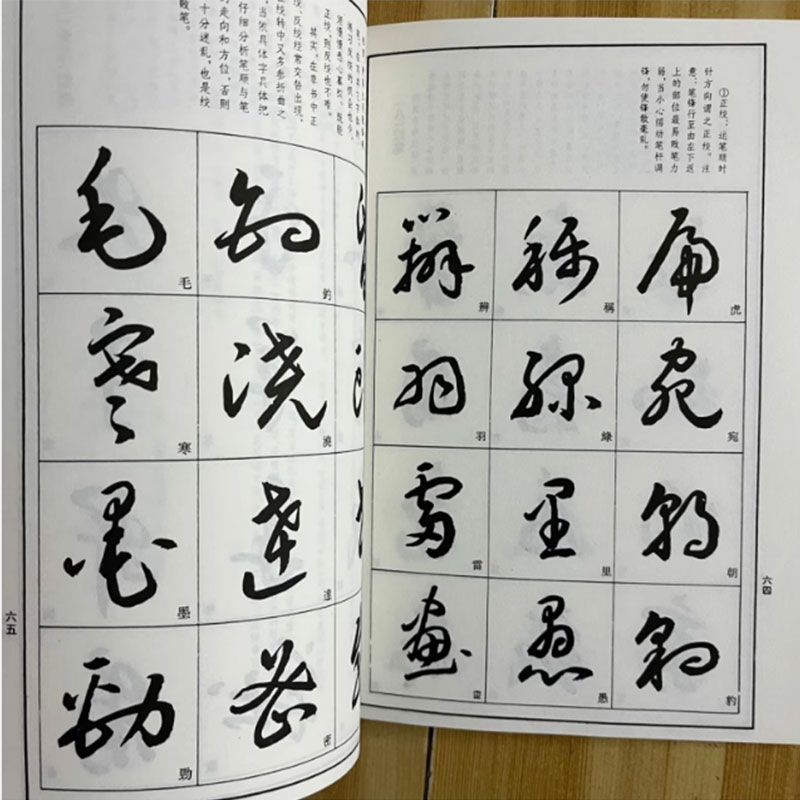 ①正绞：运笔顺时
针方向谓之正绞。注
意：笔锋行至由左下返
上的部位最易败笔力
弱，当小心捻动笔杆调
锋，勿使锋散毫乱。
虎
宛
朝
豹
稱
緣
里
愚
辨
羽
雷
六四
正绞，则反绞也不难。
其实，在草书中正
绞、反绞经常交替出现，
转中又多参折曲之
，当依具体字具体把
仔细分析笔顺与笔
的走向和方位，否则
十分迷乱，也是绞
败笔。
钓
澆
達
密
毛
寒
墨
勁
六五